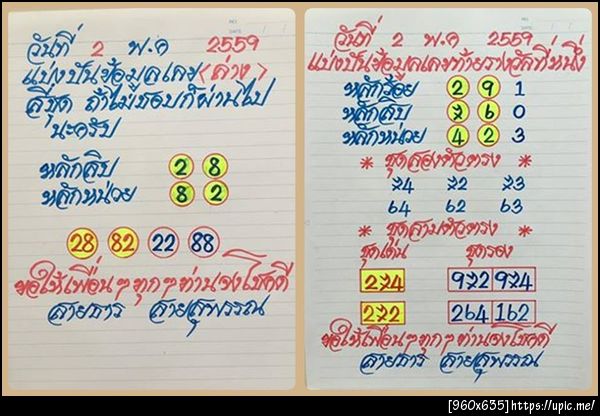 วันที่ 2 พ.ค 2559
แบ่งปันข้อมูลเลข<ล่าง>
สี่ชุด ถ้าไม่ชอบก็ผ่านไป
นะครับ
หลักสิบ 2 8
หลักหน่วย 8 2
28 82 22 88
ขอให้เพื่อนๆทุกๆท่านจงโชคดี
สายธาร สายสุพรรณ
วันที่ 2 พ.ค 2559
แบ่งปันข้อมูลเลขท้ายรางวัลที่หนึ่ง
หลักร้อย 2 9 1
หลักสิบ 7 6 0
หลักหน่วย 4 2 3
* ชุดสองตัวตรง *
74 72 73
64 62 63
* ชุดสามตัวตรง *
ชุดเด่น ชุดรอง
274 972 974
272 264 162
ขอให้เพื่อนๆทุกๆท่านจงโชคดี
สายธาร สายสุพรรณ
[960x635]https://upic.me/